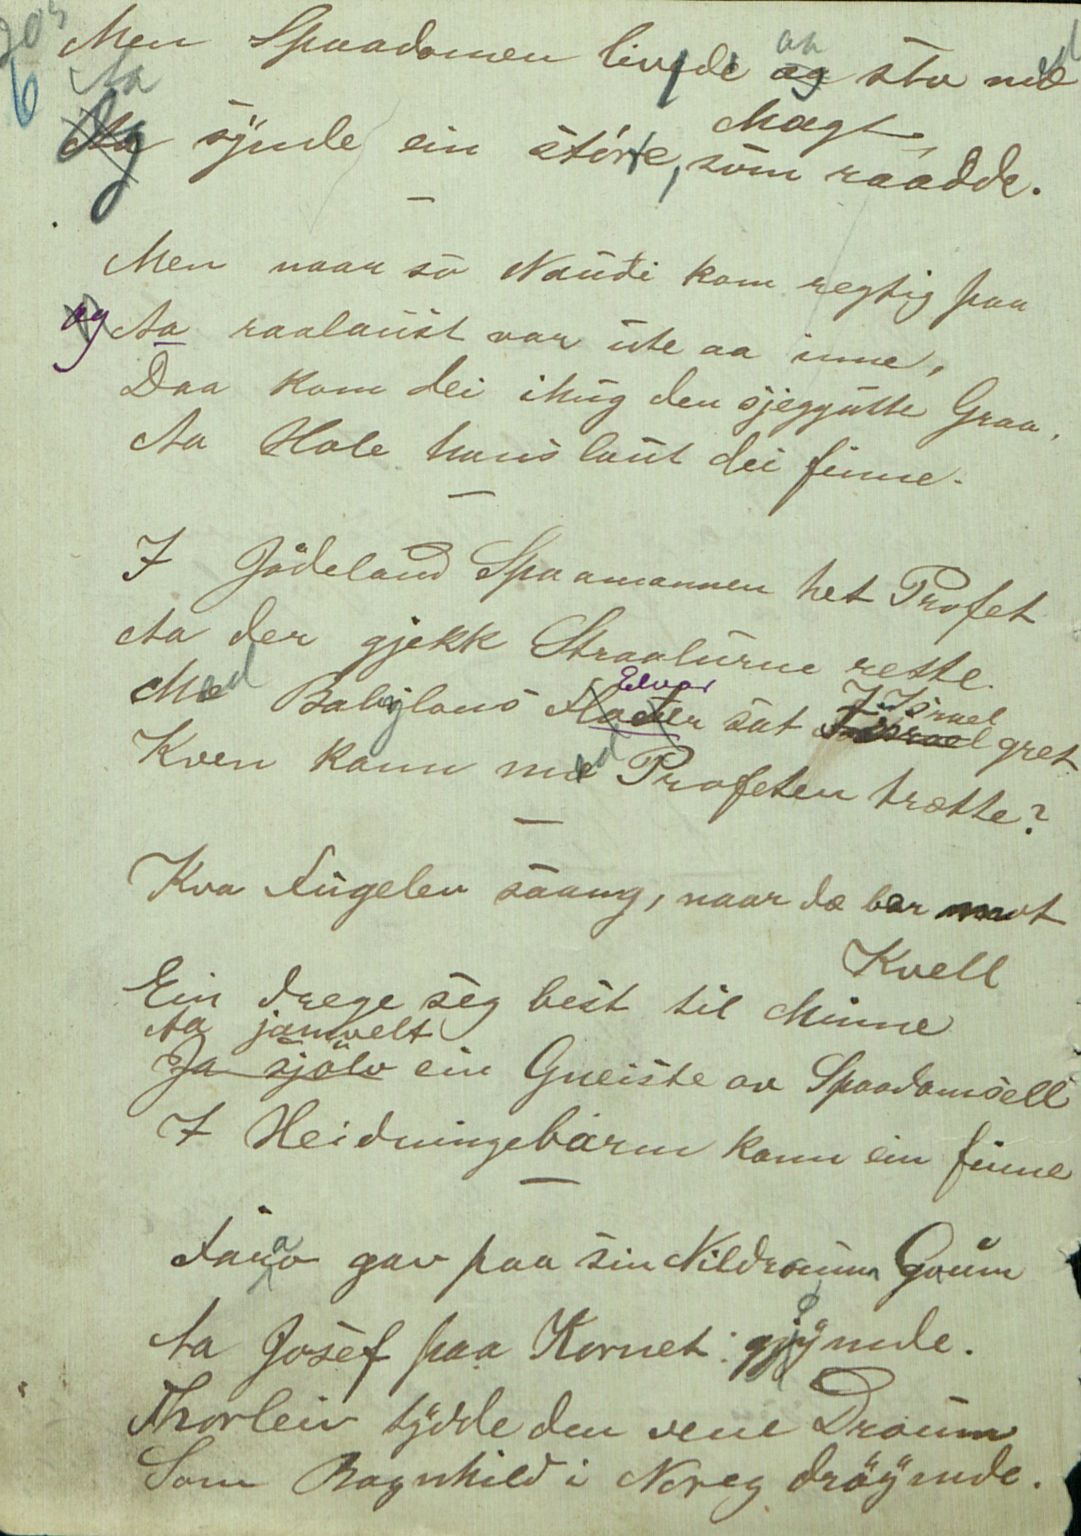 205
6
Men Spaadomen livde aa sto med
Aa synde ein større Magt, som raadde.
Men naar so Naudi kom regtig paa
og Aa raalaust var ute aa inne,
Daa kom dei ihug den sjeggutte Graa,
Aa Hole hans laut dei finne.
I Jødeland Spaamannen het Profet
Aa der gjekk Straalurne rette.
Med Babylons Elvar sat I Israel gret
Kven kann med Profeten trætte?
Kva Fugelen saang, naar dæ bar mot
Kvell
Ein drege seg best til Minne
Aa jamvelt
Ja sjölv ein Gneiste av Spaadomsell
I Heidningebarm kann ein finne
Farao gav paa sin Nildraum Gaum
Aa Josef paa Kornet gjøymde.
Thorleiv tydde den vene Draum
Som Ragnhild i Noreg drøymde.